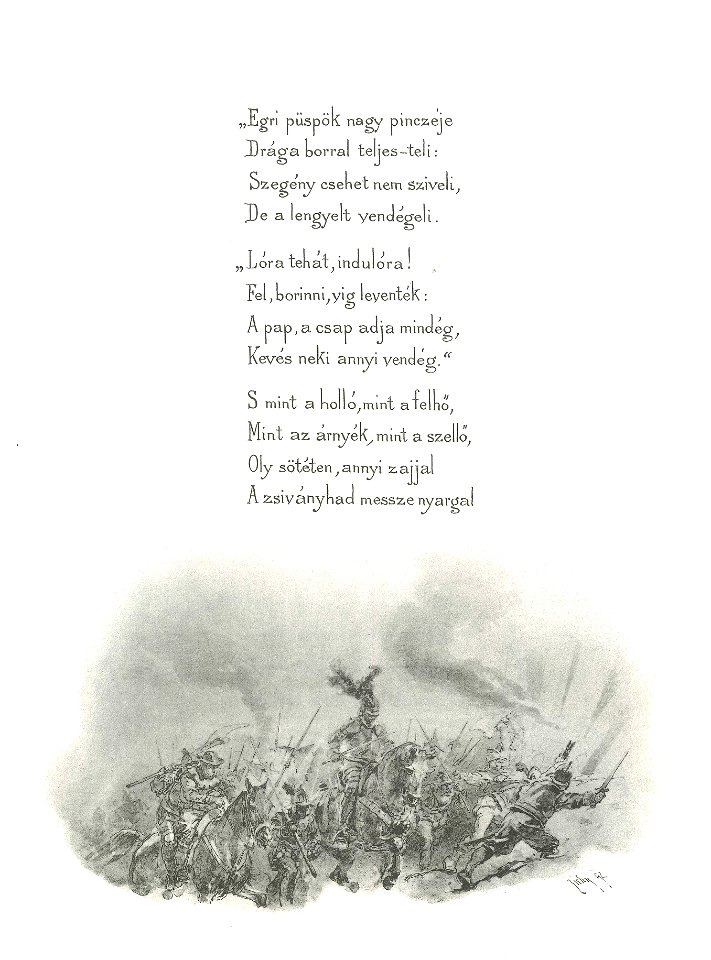 „Egri püspök nagy pinczéje
Drága borral teljes-teli:
Szegény csehet nem sziveli,
De a lengyelt vendégeli.
„Lóra tehát, indulóra!
Fel, borinni, vig leventék:
A pap, a csap adja mindég,
Kevés neki annyi vendég.“
S mint a holló, mint a felhő,
Mint az árnyék, mint a szellő,
Oly sötéten, annyi zajjal
A zsiványhad messze nyargal